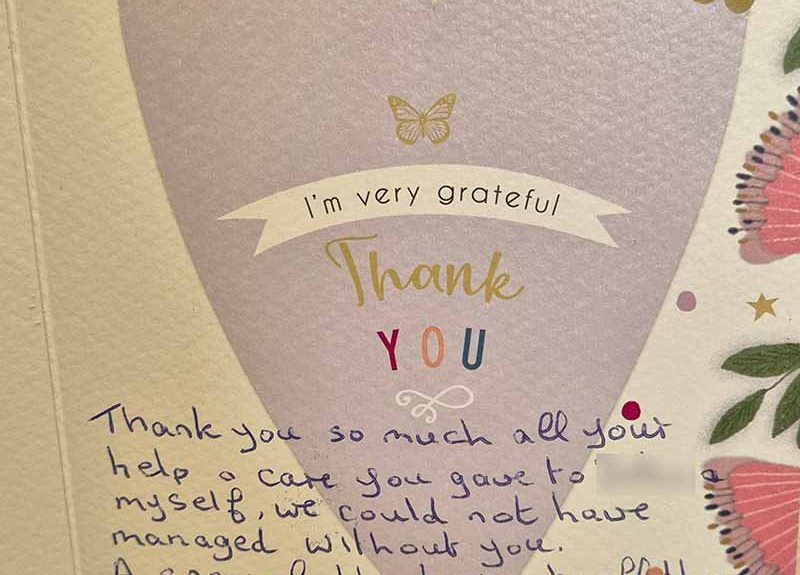 I'm very grateful
Thank
YOU
Thank you so much all your
help & care you gave to &
myself, we could not have
managed without you.